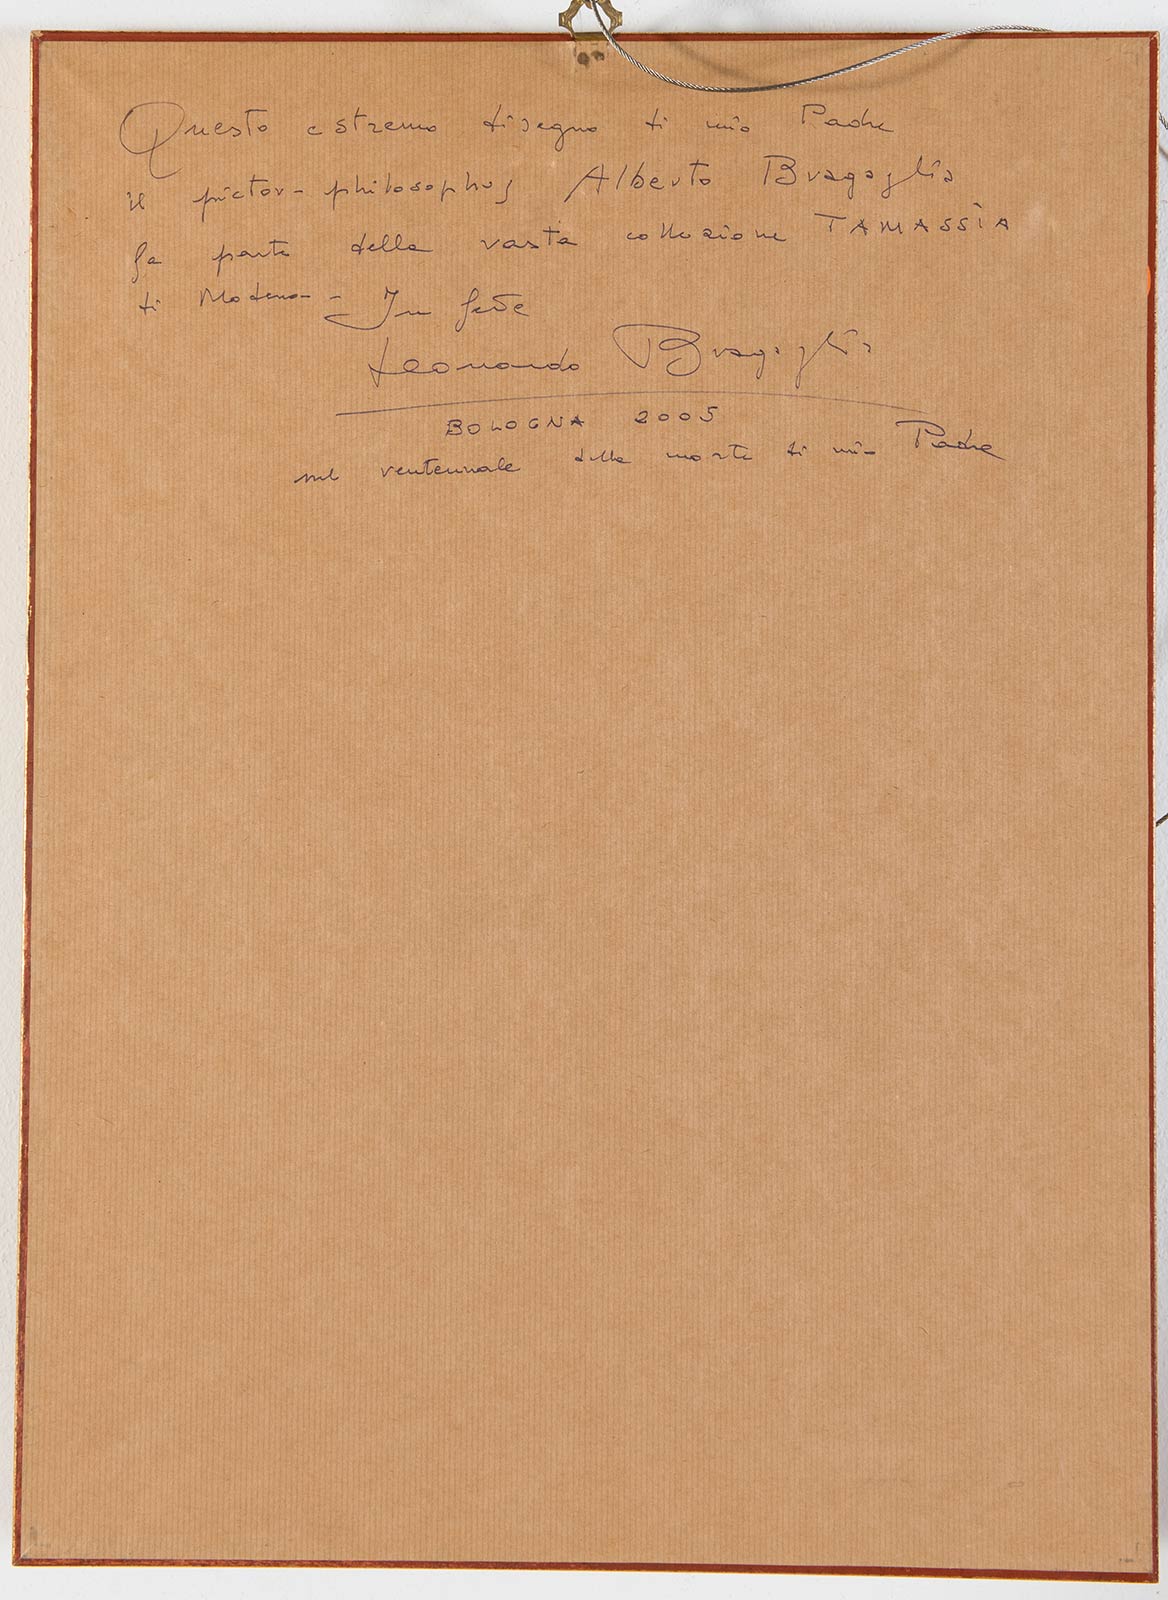 Questo estremo disegno di mio Padre
il pictor-philosophus Alberto Bragaglia
fa parte della vasta collezione TAMASSIA
di Modena - In fede
Leonardo Bragaglia
BOLOGNA 2005
nel ventennale della morte di mio Padre